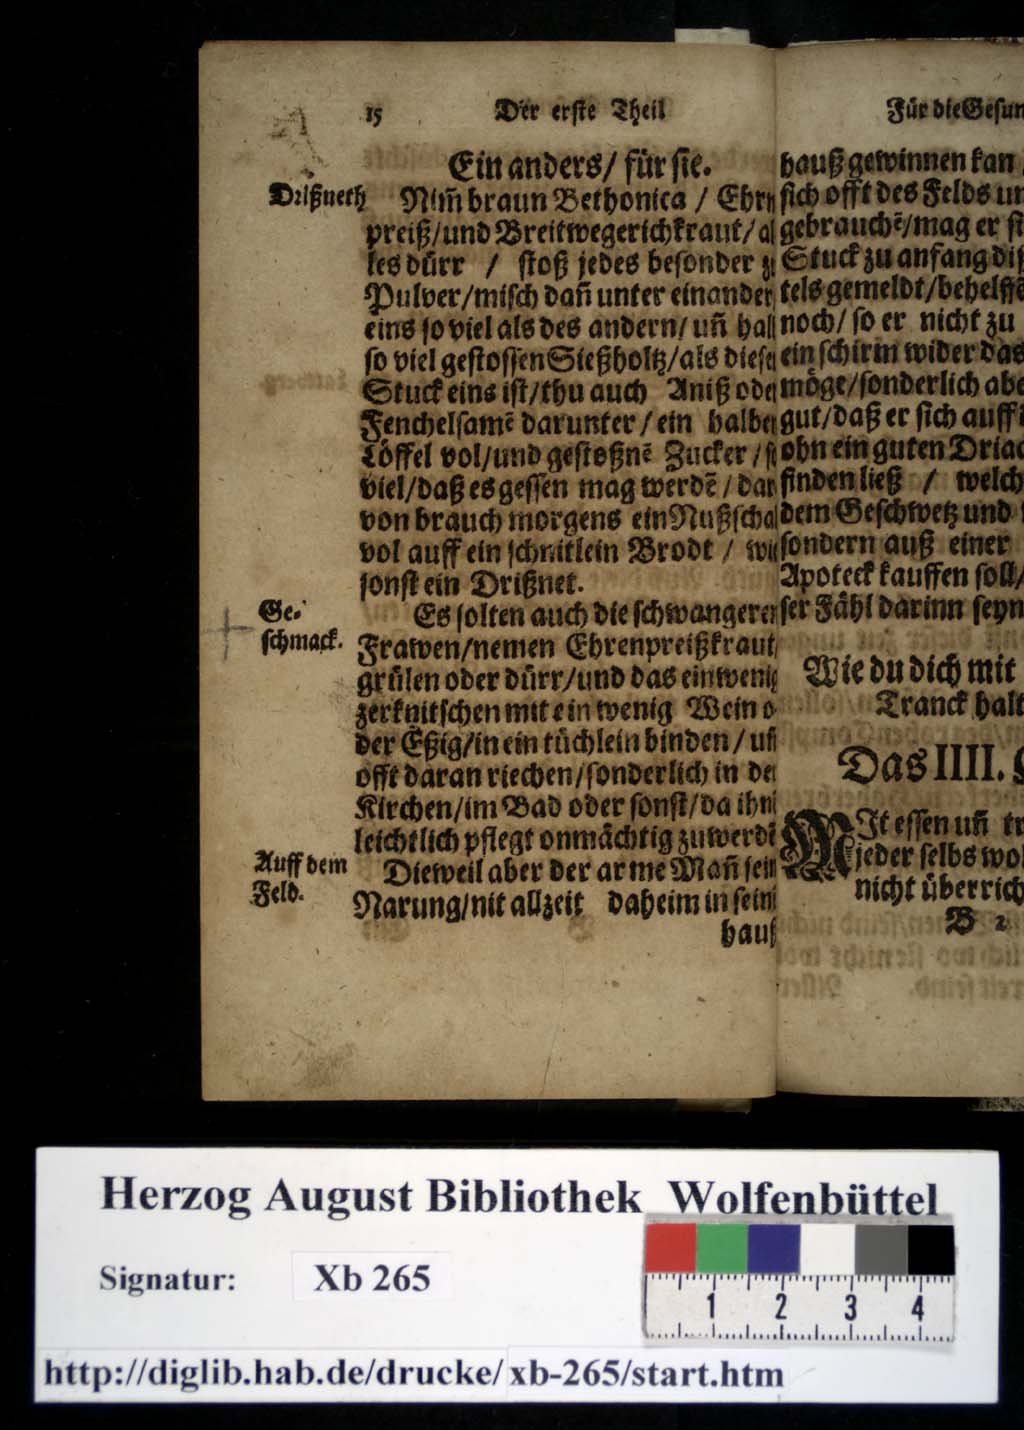 15 Der erste Theil
Ein anders/ für sie.
Drißneth
Nim̃ braun Bethonica / Ehrn
preiß/und Breitwegerichkraut/al
les dürr / stoß jedes besonder zu
Pulver/misch dañ unter einander
eins so viel als des andern/ uñ halb
so viel gestossen Sießholtz/als dieser
Stuck eins ist/thu auch Aniß oder
Fenchelsamẽ darunter / ein halben
Löffel vol/und gestoßnẽ Zucker / so
viel/daß es gessen mag werdẽ / dar
von brauch morgens ein Nußschal
vol auff ein schnitlein Brodt / wie
sonst ein Drißnet.
Ge-
schmack.
Es solten auch die schwangeren
Frawen/nemen Ehrenpreißkraut
grülen oder dürr/und das ein wenig
zerknitschen mit ein wenig Wein o
der Eßig/in ein tüchlein binden / uñ
offt daran riechen/sonderlich in der
Kirchen/im Bad oder sonst/da ihnẽ
leichtlich pflegt onmächtig zu werdẽ
Auff dem
Feld.
Dieweil aber der arme Mañ sein
Narung/nit allzeit daheim in seinẽ
hauß
Für die Gesun
hauß gewinnen kan
sich offt des Felds un
gebrauchẽ/mag er si
Stuck zu anfang diß
tels gemeldt/behelffẽ
noch/ so er nicht zu
ein schirm wider das
möge/sonderlich abe
gut/daß er sich auff
ohn ein guten Driac
finden ließ / welch
dem Geschwetz und
sondern auß einer
Apoteck kauffen soll/
ser Fähl darinn seyn
Wie du dich mit
Tranck halt
Das IIII.
MIt essen uñ tr
jeder selbs wol
nicht überrich
B 2
Herzog August Bibliothek Wolfenbüttel
Signatur: Xb 265
1 2 3 4
http://diglib.hab.de/drucke/xb-265/start.htm